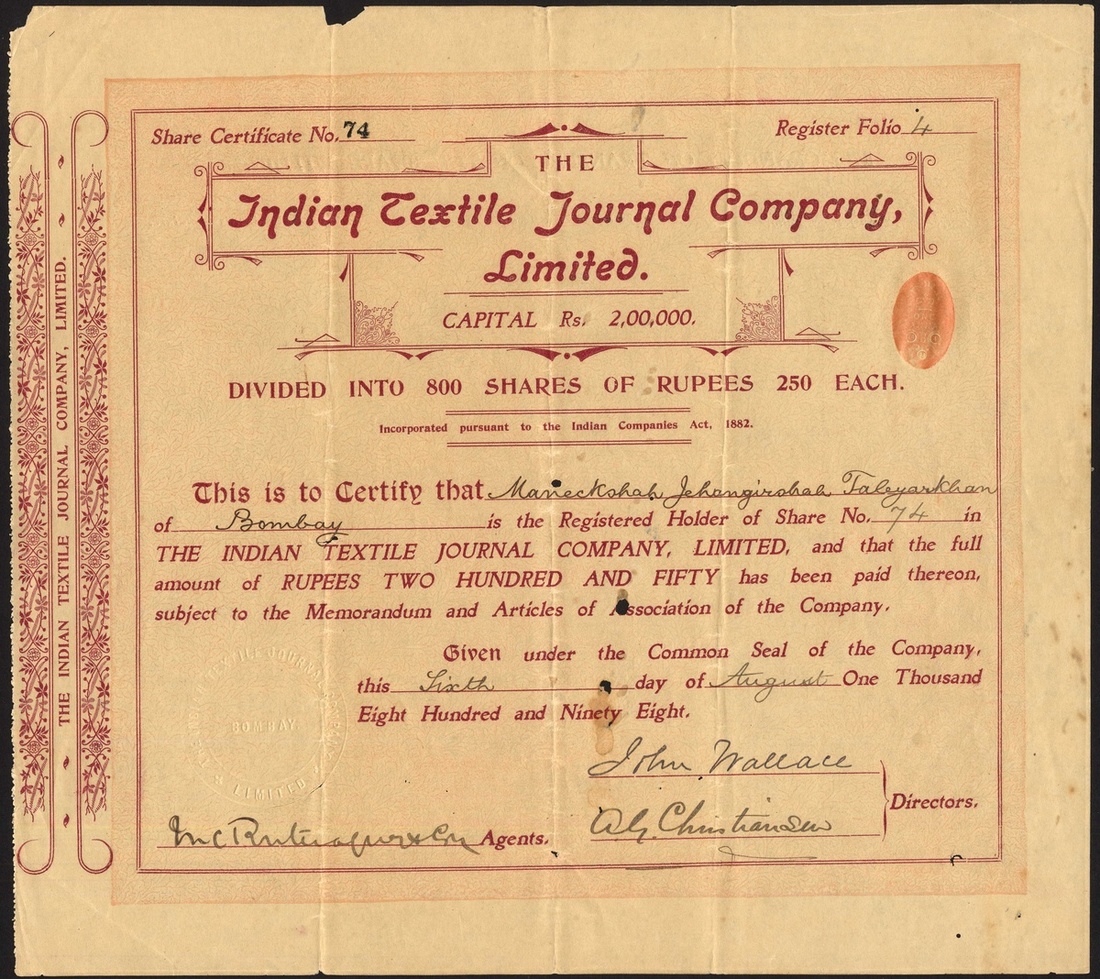 Share Certificate No. 74
Register Folio 4
THE
Indian Textile Journal Company,
Limited.
CAPITAL Rs. 2,00,000.
DIVIDED INTO 800 SHARES OF RUPEES 250 EACH.
Incorporated pursuant to the Indian Companies Act, 1882.
This is to Certify that Maneckshah Jehangirshah Taleyarkhan
of Bombay is the Registered Holder of Share No. 74 in
THE INDIAN TEXTILE JOURNAL COMPANY, LIMITED, and that the full
amount of RUPEES TWO HUNDRED AND FIFTY has been paid thereon,
subject to the Memorandum and Articles of Association of the Company.
Given under the Common Seal of the Company,
this Sixth day of August One Thousand
Eight Hundred and Ninety Eight.
John Wallace
Christiansen
Directors.
Agents.
THE INDIAN TEXTILE JOURNAL COMPANY, LIMITED.
TEXTILE JOURNAL COMPANY
BOMBAY
LIMITED